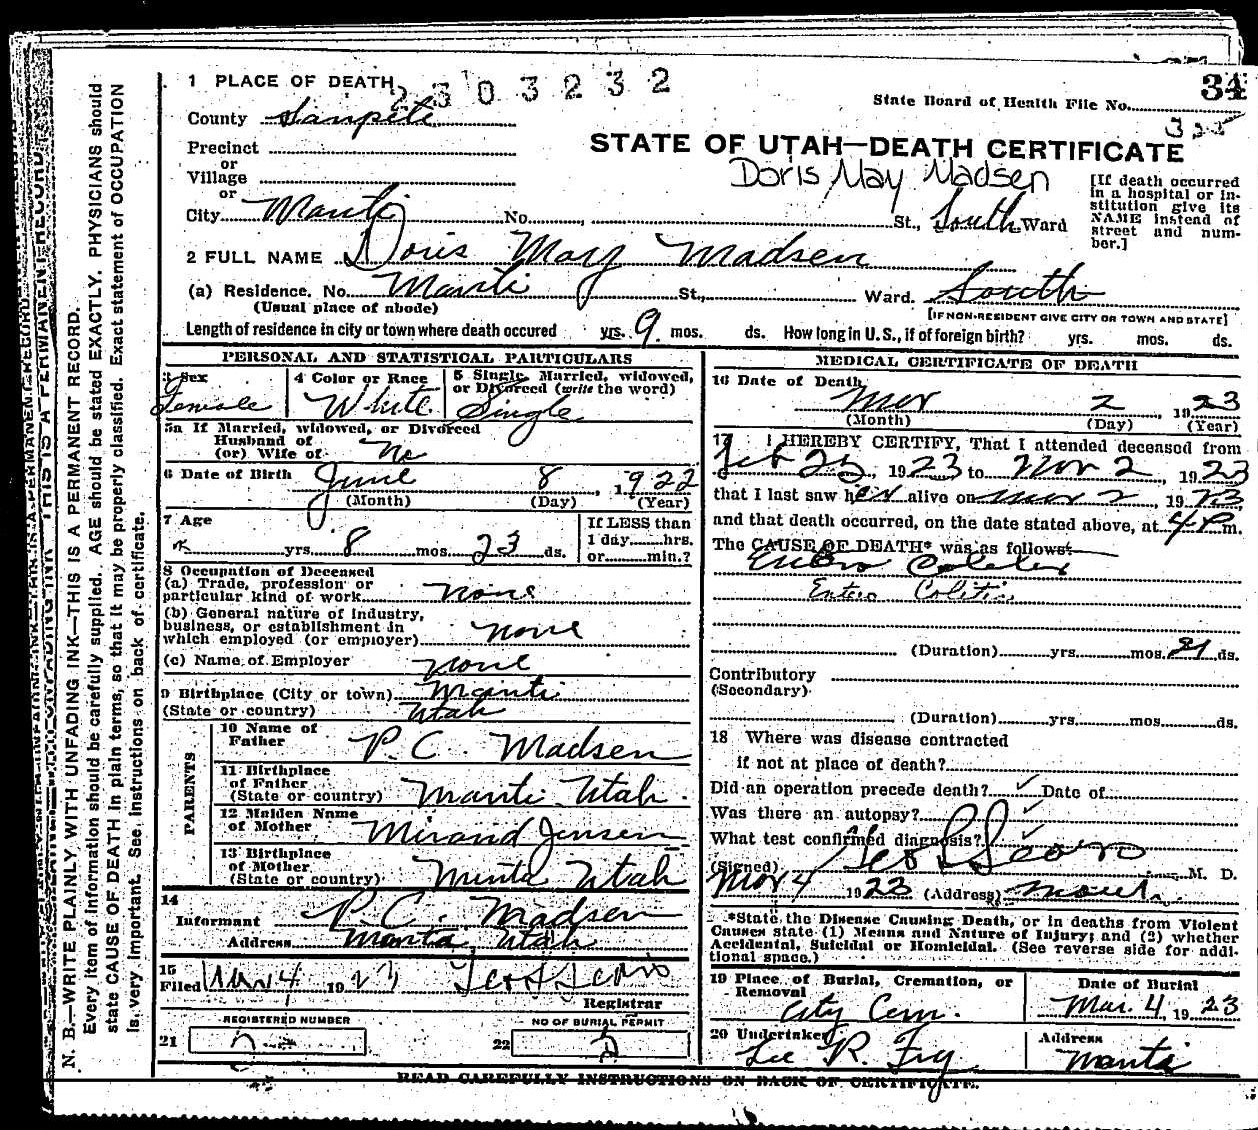 N. B.—WRITE PLAINLY WITH UNFADING INK—THIS IS A PERMANENT RECORD.
Every item of information should be carefully supplied. AGE should be stated EXACTLY. PHYSICIANS should
state CAUSE OF DEATH in plain terms, so that it may be properly classified. Exact statement of OCCUPATION
is very important. See instructions on back of certificate.
1 PLACE OF DEATH
2303232
34
State Board of Health File No.
County Sanpete
STATE OF UTAH—DEATH CERTIFICATE
Precinct
or
Village
or
Doris May Madsen
[If death occurred
in a hospital or in-
stitution give its
NAME instead of
street and num-
ber.]
City Manti No. St., South Ward
2 FULL NAME Doris May Madsen
(a) Residence. No. Manti St., Ward. South
(Usual place of abode) [IF NON-RESIDENT GIVE CITY OR TOWN AND STATE]
Length of residence in city or town where death occured yrs. 9 mos. ds. How long in U.S., if of foreign birth? yrs. mos. ds.
PERSONAL AND STATISTICAL PARTICULARS
3 Sex
Female
4 Color or Race
White
5 Single, Married, widowed,
or Divorced (write the word)
Single
5a If Married, widowed, or Divorced
Husband of
(or) Wife of No
6 Date of Birth June 8, 1922
(Month) (Day) (Year)
7 Age
yrs. 8 mos. 23 ds.
If LESS than
1 day......hrs.
or......min.?
8 Occupation of Deceased
(a) Trade, profession or
particular kind of work None
(b) General nature of industry,
business, or establishment in
which employed (or employer) None
(c) Name of Employer None
9 Birthplace (City or town) Manti
(State or country) Utah
PARENTS
10 Name of
Father P. C. Madsen
11 Birthplace
of Father
(State or country) Manti Utah
12 Maiden Name
of Mother Mirand Jensen
13 Birthplace
of Mother
(State or country) Utah
14
Informant P. C. Madsen
Address Manta, Utah
15
Filed Mar 4 1923
Registrar
REGISTERED NUMBER
21
NO OF BURIAL PERMIT
22
MEDICAL CERTIFICATE OF DEATH
16 Date of Death
Mar 2, 1923
(Month) (Day) (Year)
17 I HEREBY CERTIFY, That I attended deceased from
Feb 25, 1923 to Mar 2, 1923
that I last saw her alive on Mar 2, 1923
and that death occurred, on the date stated above, at 4 P. m.
The CAUSE OF DEATH* was as follows:
Entero Colitis
Entero Colitis
(Duration) yrs. mos. 21 ds.
Contributory
(Secondary)
(Duration) yrs. mos. ds.
18 Where was disease contracted
if not at place of death?
Did an operation precede death? ✓ Date of
Was there an autopsy? ✓
What test confirmed diagnosis? ✓
(Signed) M. D.
Mar 4 1923 (Address)
*State the Disease Causing Death, or in deaths from Violent
Causes state (1) Means and Nature of Injury; and (2) whether
Accidental, Suicidal or Homicidal. (See reverse side for addi-
tional space.)
19 Place of Burial, Cremation, or
Removal
City Cem.
Date of Burial
Mar. 4, 1923
20 Undertaker
Lee R. Fry
Address
Manti
READ CAREFULLY INSTRUCTIONS ON BACK OF CERTIFICATE.